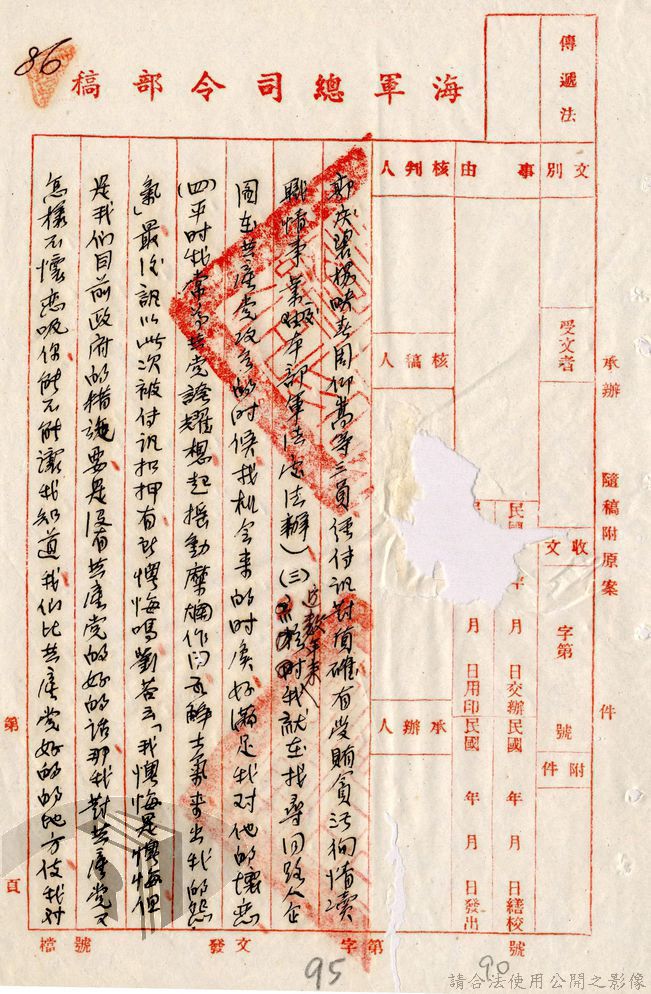 86
海軍總司令部稿
傳遞法
文別
事由
核判人
受文者
核稿人
承辦人
承辦 隨稿附原案 件
收文
字第 號
附件
民國 年 月 日交辦
民國 年 月 日繕校
月 日用印
民國 年 月 日發出
等三員經付訊對質確有受賄貪污徇情瀆
職情事業經本部軍法處法辦）（三）近數年來我就在找尋回路人企
圖在共產党攻台的时候我机会来的时候好滿足我对他的懷恋
（四）平时我常为共党誇耀想起搖動
氣」最後訊以此次被付訊扣押有所懊悔嗎劉答云「我懊悔是懊悔但
是我们目前政府的措施要是沒有共產党的好的話那我对共產党又
怎樣不懷恋呢你能不能讓我知道我们比共產党好的的地方使我对
第 頁
檔號
發文
字第 號
95
90
請合法使用公開之影像